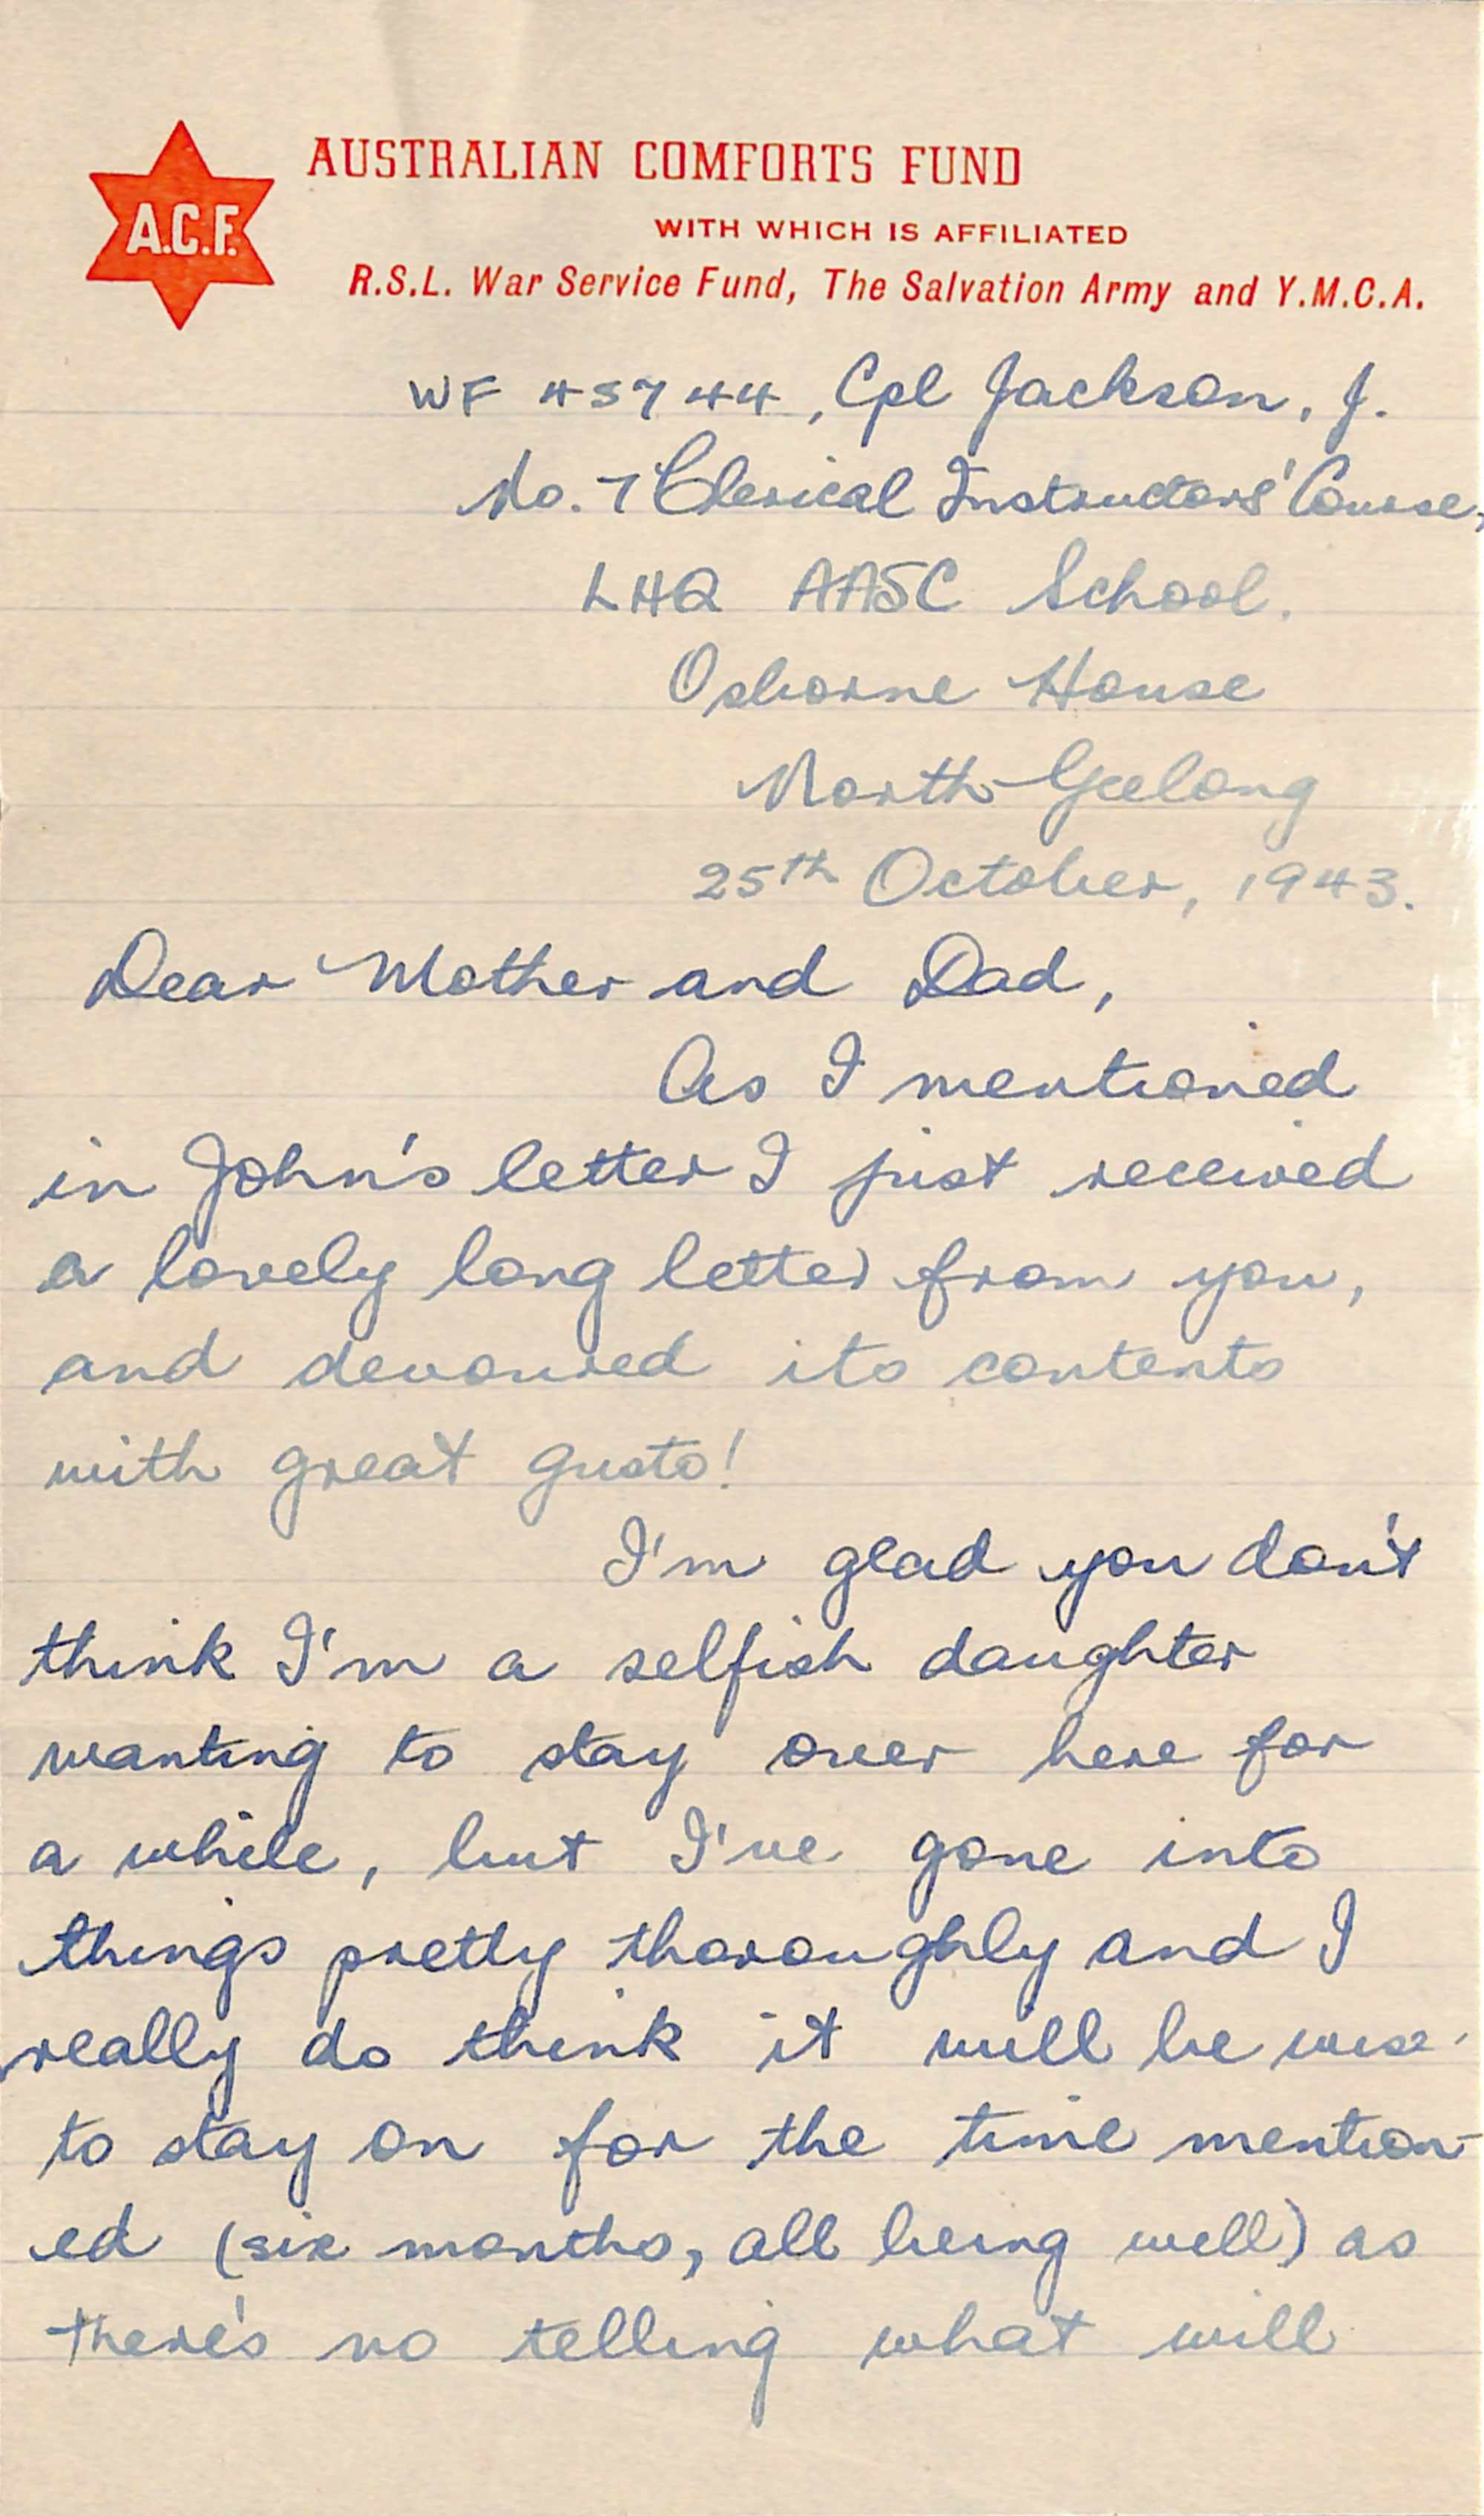 A.C.F.
AUSTRALIAN COMFORTS FUND
WITH WHICH IS AFFILIATED
R.S.L. War Service Fund, The Salvation Army and Y.M.C.A.
WF 45744, Cpl Jackson, J.
No. 7 Clerical Instructors' Course,
LHQ AASC School.
Osborne House
North Geelong
25th October, 1943.
Dear Mother and Dad,
As I mentioned
in John's letter I just received
a lovely long letter from you,
and devoured its contents
with great gusto!
I'm glad you don't
think I'm a selfish daughter
wanting to stay over here for
a while, but I've gone into
things pretty thoroughly and I
really do think it will be wise
to stay on for the time mention-
ed (six months, all being well) as
there's no telling what will